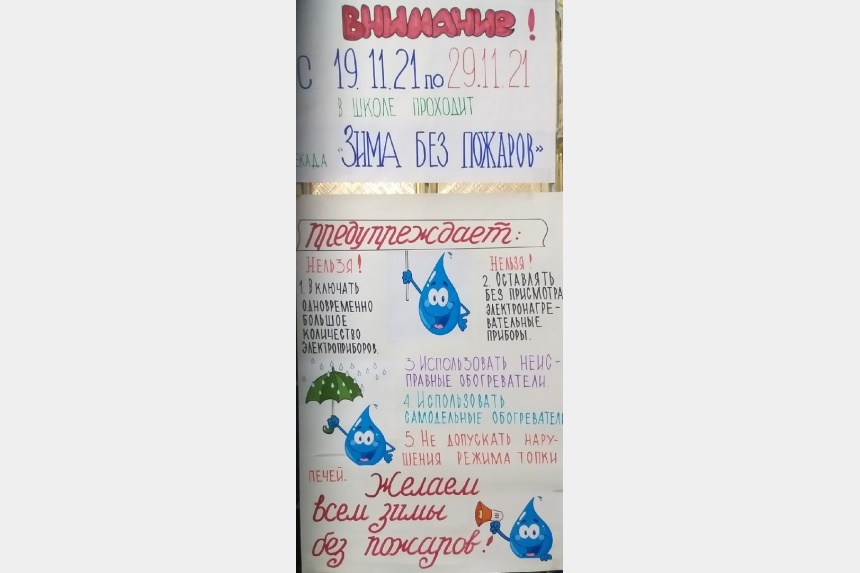 ВНИМАНИЕ!
С 19.11.21 по 29.11.21
В ШКОЛЕ ПРОХОДИТ
ЕКАДА «ЗИМА БЕЗ ПОЖАРОВ»
предупреждает:
НЕЛЬЗЯ!
1. ВКЛЮЧАТЬ
ОДНОВРЕМЕННО
БОЛЬШОЕ
КОЛИЧЕСТВО
ЭЛЕКТРОПРИБОРОВ.
НЕЛЬЗЯ!
2. ОСТАВЛЯТЬ
БЕЗ ПРИСМОТРА
ЭЛЕКТРОНАГРЕ-
ВАТЕЛЬНЫЕ
ПРИБОРЫ.
3. ИСПОЛЬЗОВАТЬ НЕИС-
ПРАВНЫЕ ОБОГРЕВАТЕЛИ.
4. ИСПОЛЬЗОВАТЬ
САМОДЕЛЬНЫЕ ОБОГРЕВАТЕЛИ
5. НЕ ДОПУСКАТЬ НАРУ-
ШЕНИЯ РЕЖИМА ТОПКИ
ПЕЧЕЙ.
Желаем
всем зимы
без пожаров!